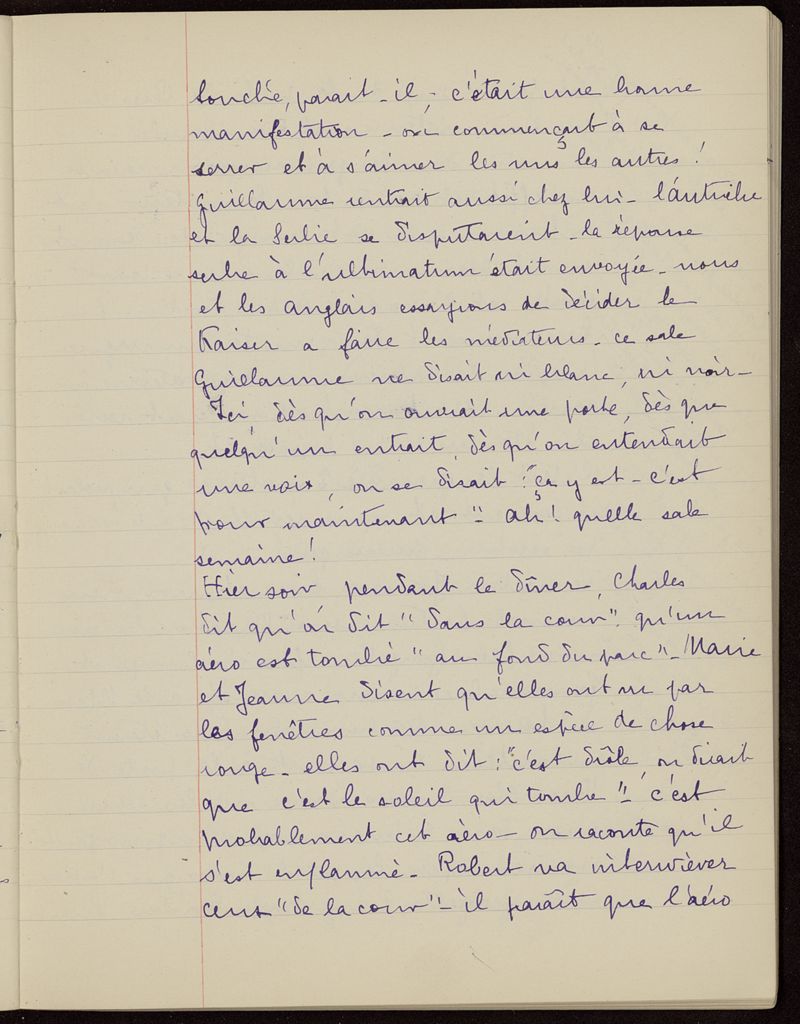 touché, parait-il, - c'était une bonne
manifestation - on commençait à se
serrer et à s'aimer les uns les autres !
Guillaume rentrait aussi chez lui - l'Autriche
et la Serbie se disputaient - la réponse
serbe à l'ultimatum était envoyée - nous
et les anglais essayions de décider le
Kaiser a faire les médiateurs - ce sale
Guillaume ne disait ni blanc, ni noir -
Ici, dès qu'on ouvrait une porte, dès que
quelqu'un entrait, dès qu'on entendait
une voix, on se disait : "ça y est - c'est
pour maintenant" - ah ! quelle sale
semaine !
Hier soir pendant le dîner, Charles
dit qu'on dit "dans la cour" qu'un
aéro est tombé "au fond du parc" - Marie
et Jeanne disent qu'elles ont vu par
les fenêtres comme un espèce de chose
rouge - elles ont dit : "c'est drôle, on dirait
que c'est le soleil qui tombe" - c'est
probablement cet aéro - on raconte qu'il
s'est enflammé - Robert va interviewer
ceux "de la cour" - il paraît que l'aéro